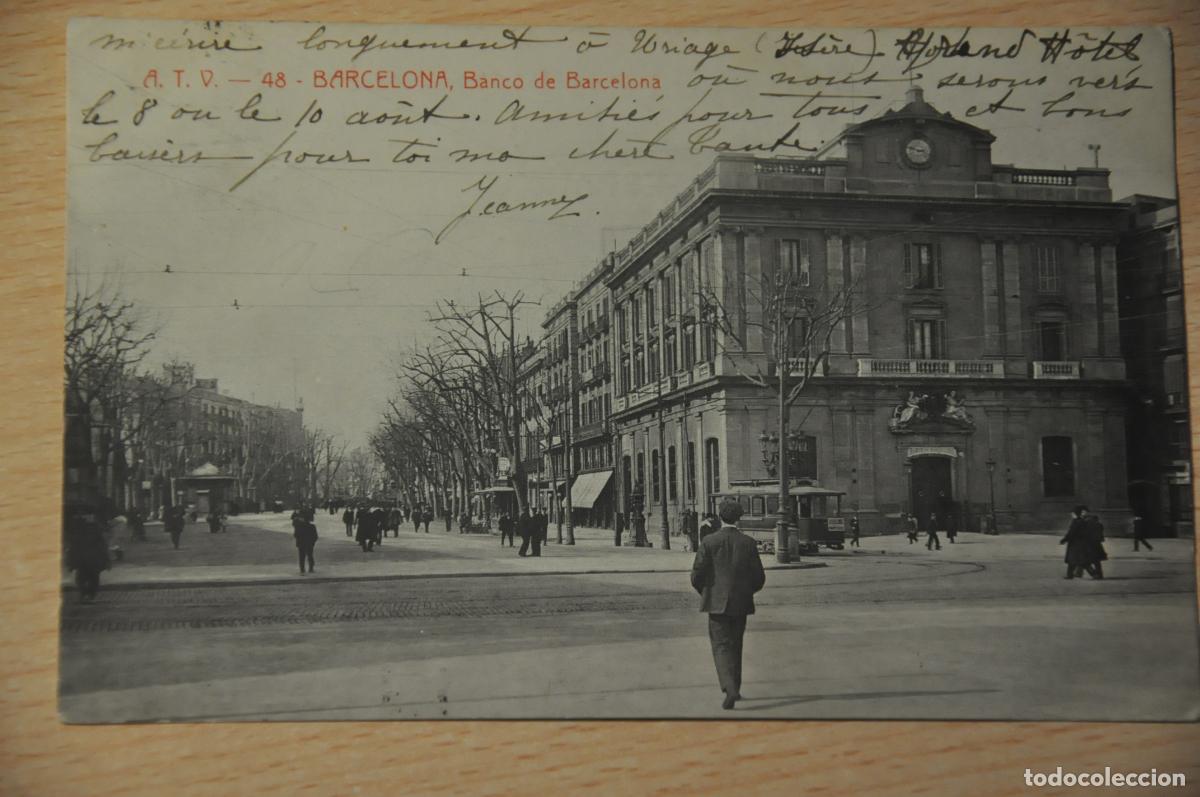 m'écrire longuement à Uriage (Isère) - Grand Hôtel
A. T. V. — 48 - BARCELONA, Banco de Barcelona
où nous serons vers
le 8 ou le 10 août. Amitiés pour tous et bons
baisers pour toi ma chère tante.
Jeanne.
todocoleccion